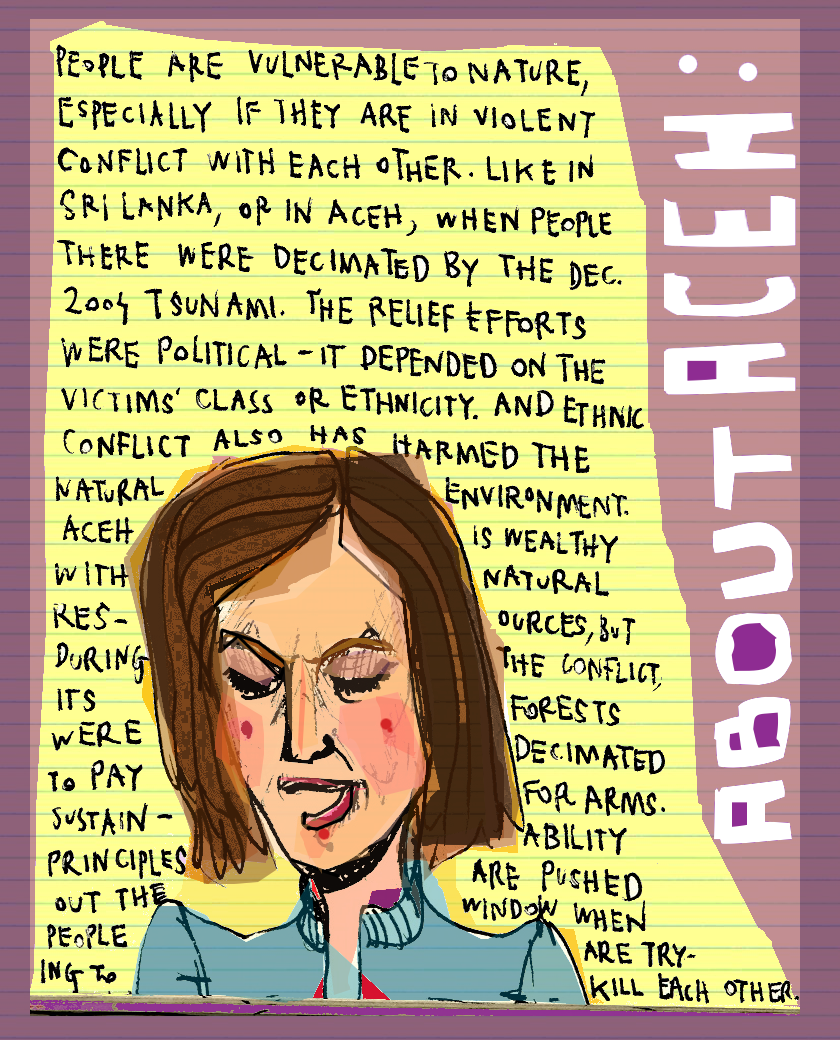 ABOUT ACEH:
PEOPLE ARE VULNERABLE TO NATURE,
ESPECIALLY IF THEY ARE IN VIOLENT
CONFLICT WITH EACH OTHER. LIKE IN
SRI LANKA, OR IN ACEH, WHEN PEOPLE
THERE WERE DECIMATED BY THE DEC.
2004 TSUNAMI. THE RELIEF EFFORTS
WERE POLITICAL - IT DEPENDED ON THE
VICTIMS' CLASS OR ETHNICITY. AND ETHNIC
CONFLICT ALSO HAS HARMED THE
NATURAL ENVIRONMENT.
ACEH IS WEALTHY
WITH NATURAL
RES- OURCES, BUT
DURING THE CONFLICT,
ITS FORESTS
WERE DECIMATED
TO PAY FOR ARMS.
SUSTAIN- ABILITY
PRINCIPLES ARE PUSHED
OUT THE WINDOW WHEN
PEOPLE ARE TRY-
ING TO KILL EACH OTHER.